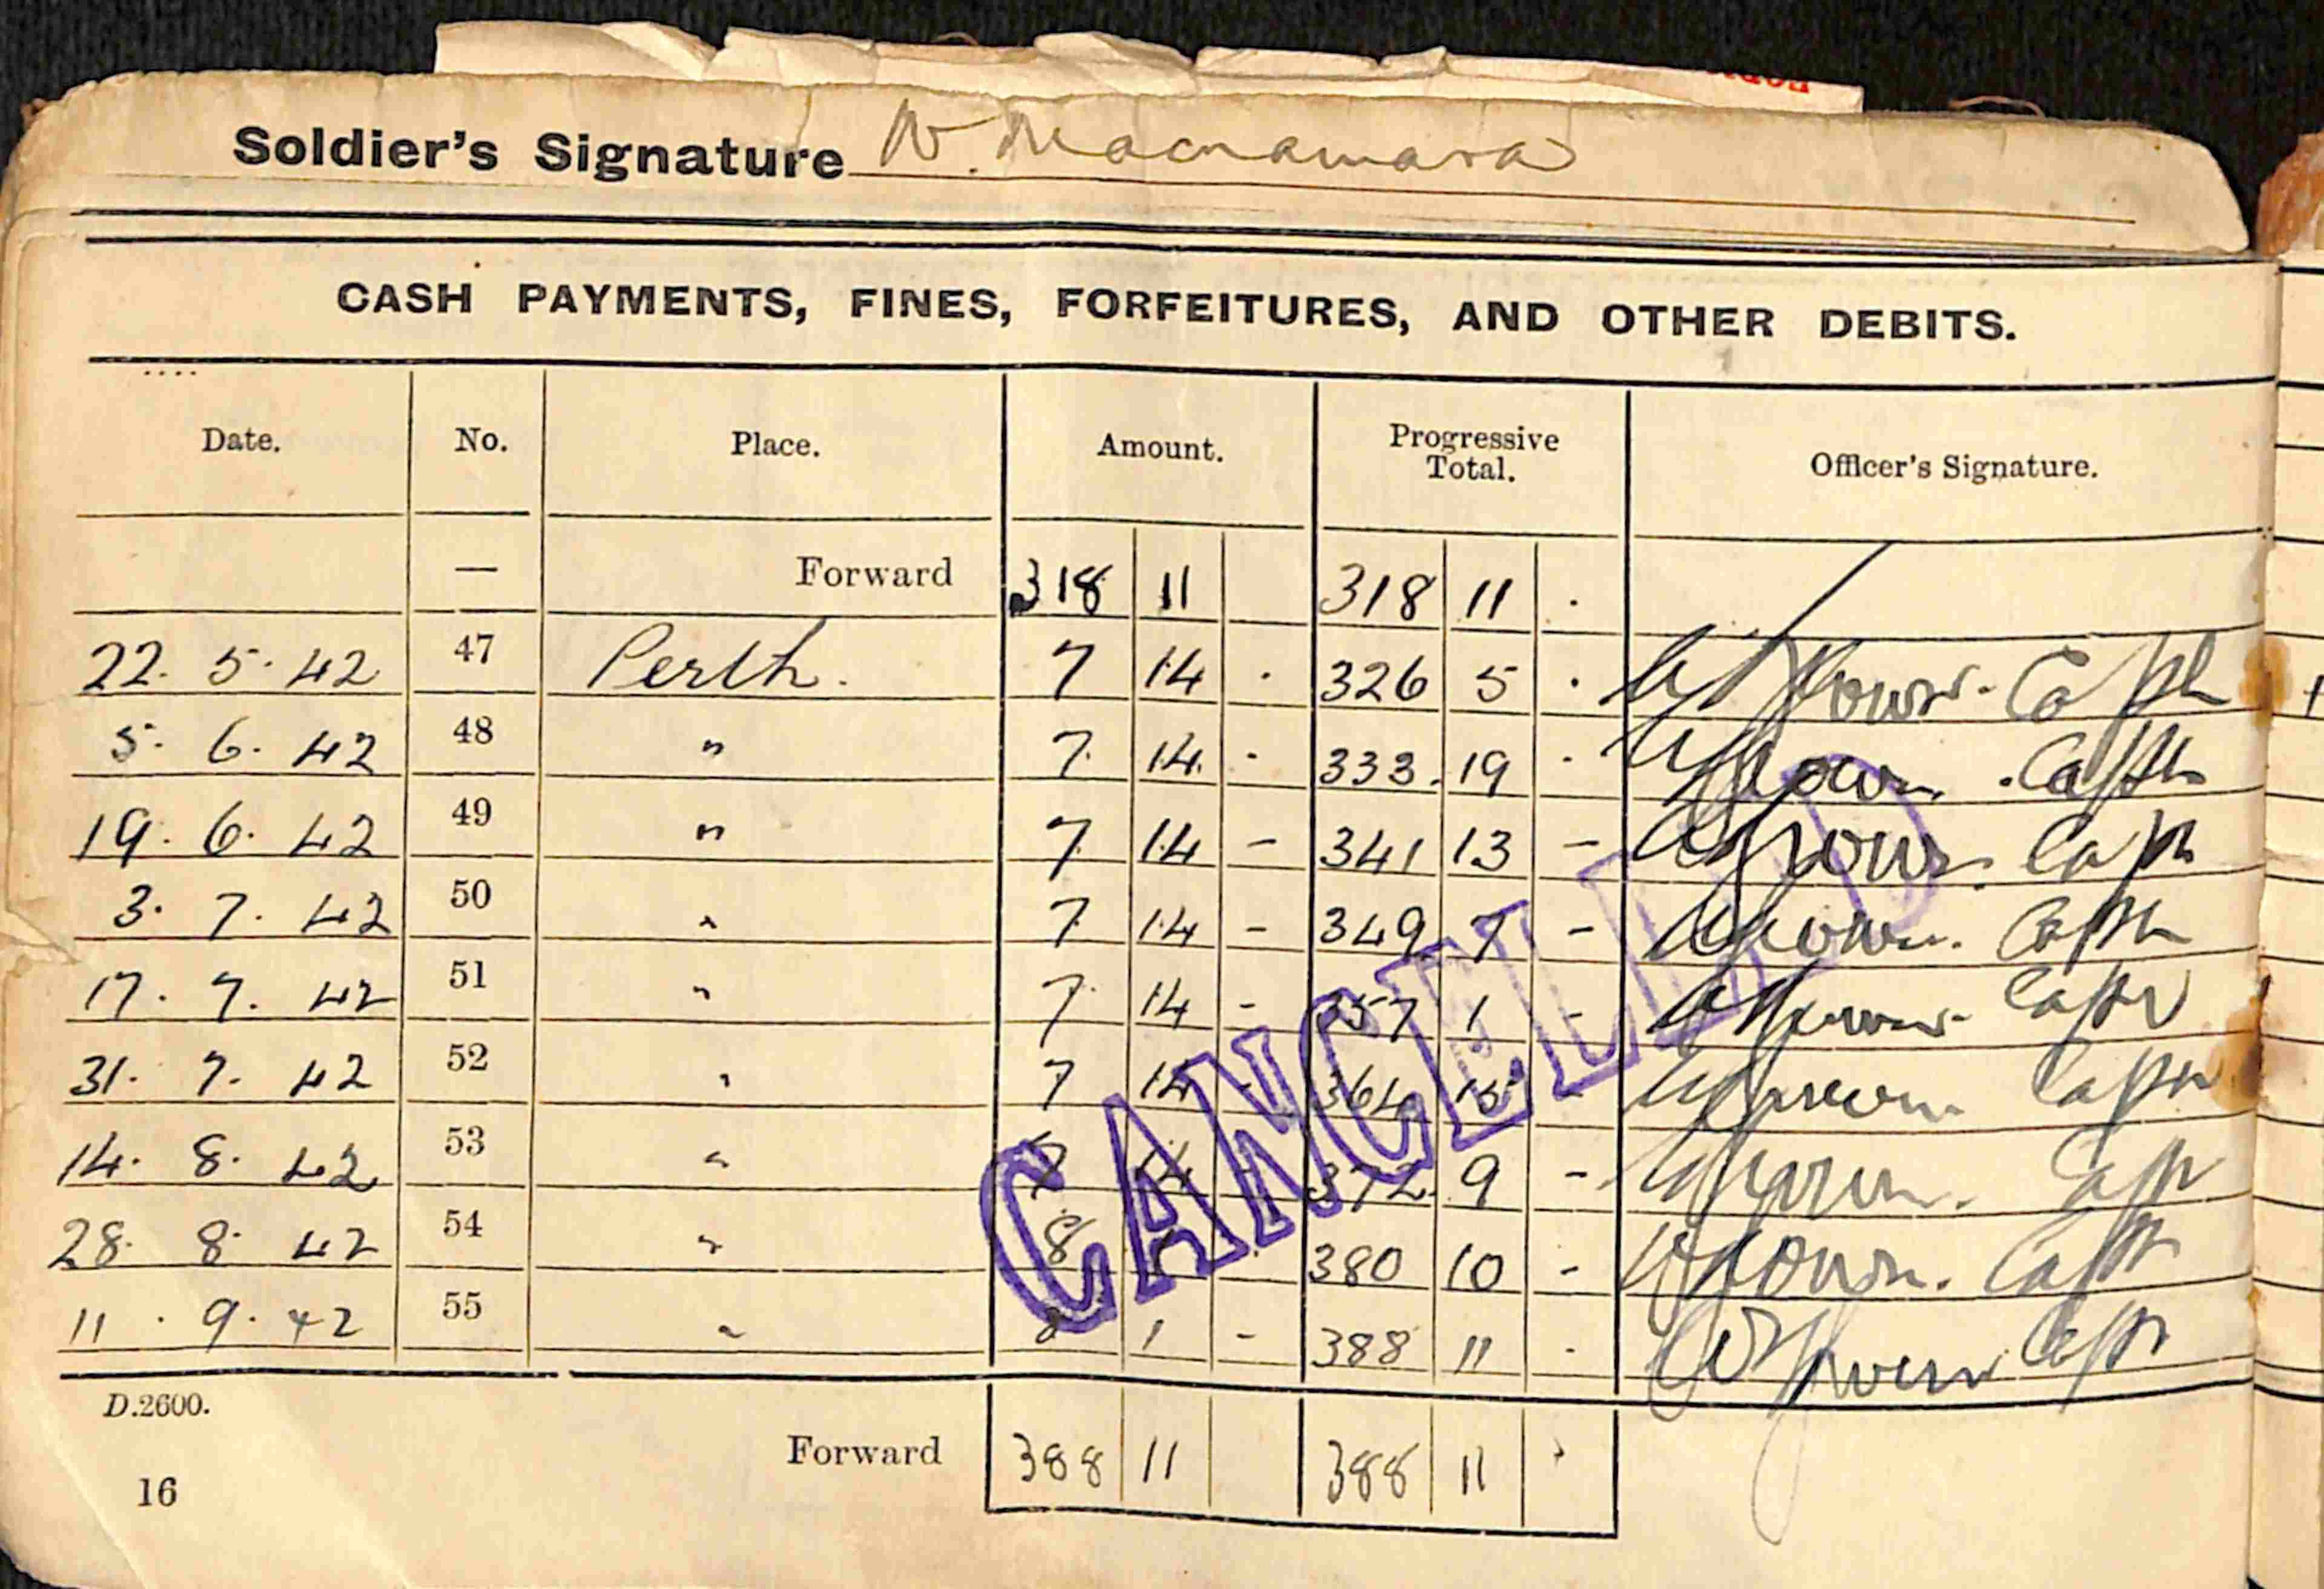 Soldier's Signature W. Macnamara
CASH PAYMENTS, FINES, FORFEITURES, AND OTHER DEBITS.
Date. No. Place. Amount. Progressive Total. Officer's Signature.
— Forward 318 11 318 11 .
22. 5. 42 47 Perth. 7 14 . 326 5 . Capt
5. 6. 42 48 " 7 14 - 333 19 . Capt
19. 6. 42 49 " 7 14 - 341 13 - Capt
3. 7. 42 50 " 7 14 - 349 7 - Capt
17. 7. 42 51 " 7 14 - 357 1 - Capt
31. 7. 42 52 " 7 14 - 364 15 - Capt
14. 8. 42 53 " 7 14 - 372 9 - Capt
28. 8. 42 54 " 8 1 - 380 10 - Capt
11. 9. 42 55 " 8 1 - 388 11 - Capt
CANCELLED
D.2600.
Forward 388 11 388 11
16